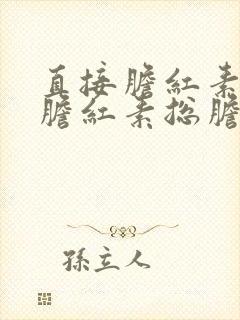 直接膽紅素
膽紅素總膽
孫主人